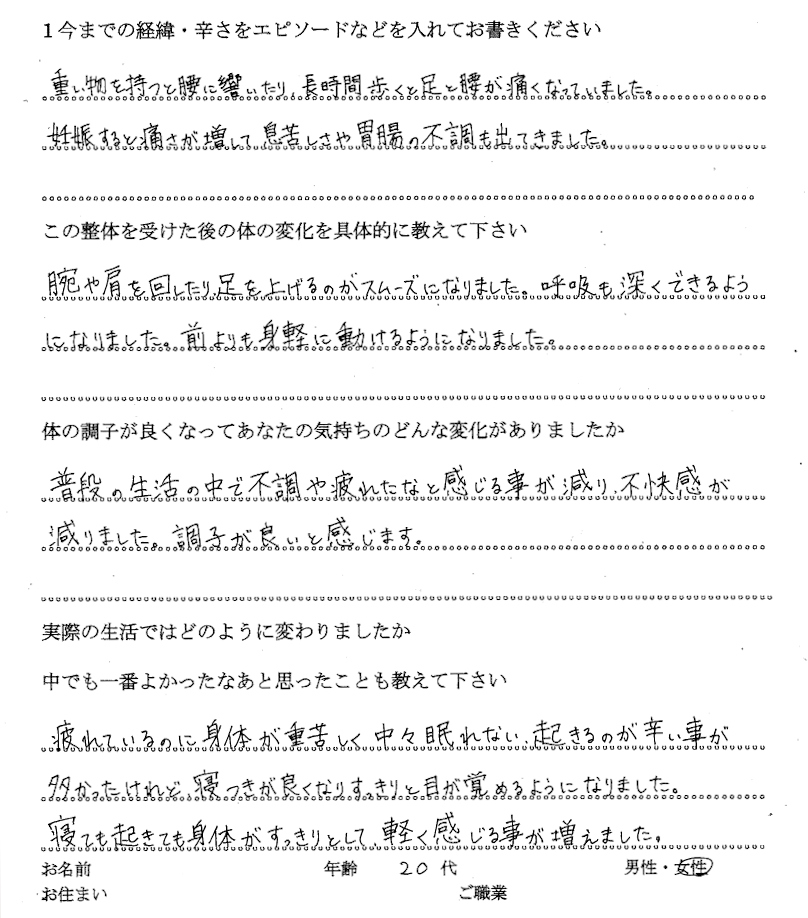 １今までの経緯・辛さをエピソードなどを入れてお書きください
重い物を持つと腰に響いたり、長時間歩くと足と腰が痛くなっていました。
妊娠すると痛さが増して息苦しさや胃腸の不調も出てきました。
この整体を受けた後の体の変化を具体的に教えて下さい
腕や肩を回したり、足を上げるのがスムーズになりました。呼吸も深くできるよう
になりました。前よりも身軽に動けるようになりました。
体の調子が良くなってあなたの気持ちのどんな変化がありましたか
普段の生活の中で不調や疲れたなと感じる事が減り、不快感が
減りました。調子が良いと感じます。
実際の生活ではどのように変わりましたか
中でも一番よかったなあと思ったことも教えて下さい
疲れているのに身体が重苦しく中々眠れない、起きるのが辛い事が
多かったけれど、寝つきが良くなりすっきりと目が覚めるようになりました。
寝ても起きても身体がすっきりとして、軽く感じる事が増えました。
お名前 年齢 20 代 男性・女性
お住まい ご職業